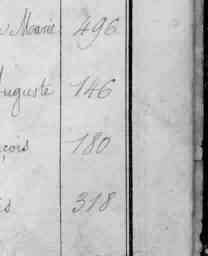 Marie 496
Auguste 146
çois 180
is 318